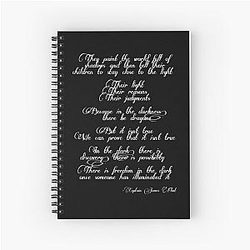 They paint the world full of
shadows and then tell their
children to stay close to the light
Their light
Their reasons
Their judgments
Because in the darkness
there be dragons
But it isnt true
We can prove that it isnt true
In the dark there is
discovery there is possibility
There is freedom in the dark
once someone has illuminated it
Captain James Flint